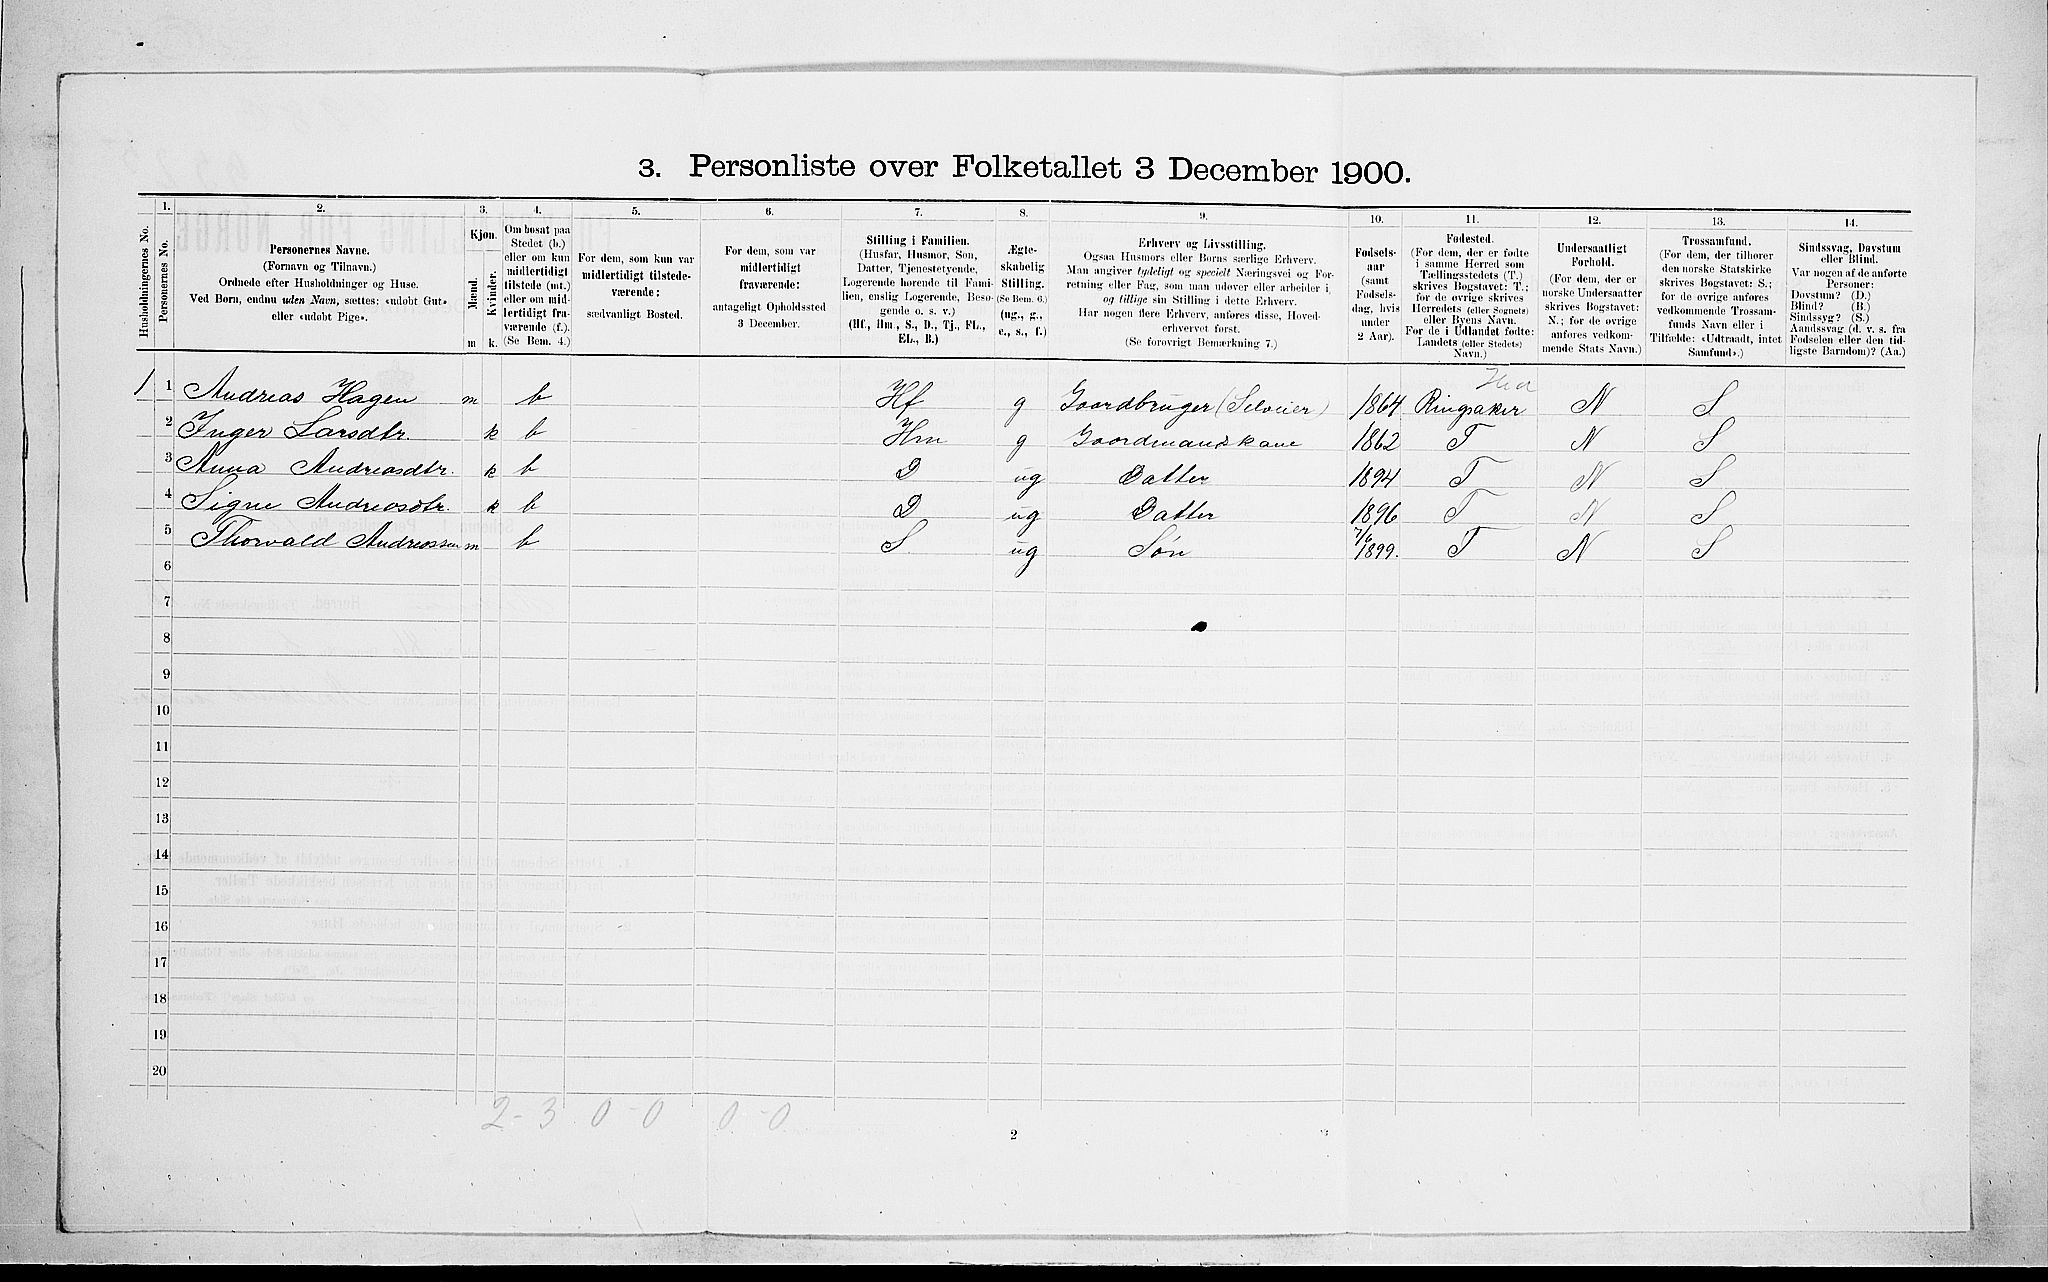 3. Personliste over Folketallet 3 December 1900.
1. 2. 3. 4. 5. 6. 7. 8. 9. 10. 11. 12. 13. 14.
Husholdningernes No.
Personernes No.
Personernes Navne.
(Fornavn og Tilnavn.)
Ordnede efter Husholdninger og Huse.
Ved Børn, endnu uden Navn, sættes: «udøbt Gut»
eller «udøbt Pige».
Kjøn.
Mænd.
Kvinder.
m k.
Om bosat paa
Stedet (b.)
eller om kun
midlertidigt
tilstede (mt.)
eller om mid-
lertidigt fra-
værende (f.).
(Se Bem. 4.)
For dem, som kun var
midlertidigt tilstede-
værende:
sædvanligt Bosted.
For dem, som var
midlertidigt
fraværende:
antageligt Opholdssted
3 December.
Stilling i Familien.
(Husfar, Husmor, Søn,
Datter, Tjenestetyende,
Logerende hørende til Fami-
lien, enslig Logerende, Besø-
gende o. s. v.)
(Hf., Hm., S., D., Tj., FL.,
EL., B.)
Ægte-
skabelig
Stilling.
(Se Bem. 6.)
(ug., g.,
e., s., f.)
Erhverv og Livsstilling.
Ogsaa Husmors eller Børns særlige Erhverv.
Man angiver tydeligt og specielt Næringsvei og For-
retning eller Fag, som man udøver eller arbeider i,
og tillige sin Stilling i dette Erhverv.
Har nogen flere Erhverv, anføres disse, Hoved-
erhvervet først.
(Se forøvrigt Bemærkning 7.)
Fødsels-
aar
(samt
Fødsels-
dag, hvis
under
2 Aar).
Fødested.
(For dem, der er fødte
i samme Herred som
Tællingsstedets (T.)
skrives Bogstavet: T.;
for de øvrige skrives
Herredets (eller Sognets)
eller Byens Navn.
For de i Udlandet fødte:
Landets (eller Stedets)
Navn.)
Undersaatligt
Forhold.
(For dem, der er
norske Undersaatter
skrives Bogstavet:
N.; for de øvrige
anføres vedkom-
mende Stats Navn.)
Trossamfund.
(For dem, der tilhører
den norske Statskirke
skrives Bogstavet: S.;
for de øvrige anføres
vedkommende Trossam-
funds Navn eller i
Tilfælde: «Udtraadt, intet
Samfund».)
Sindssvag, Døvstum
eller Blind.
Var nogen af de anførte
Personer:
Døvstum? (D.)
Blind? (B.)
Sindssyg? (S.)
Aandssvag (d. v. s. fra
Fødselen eller den tid-
ligste Barndom)? (Aa.)
1 1 Andreas Hagen m b Hf g Gaardbruger (Selveier) 1864 Ringsaker N S
2 Inger Larsdtr. k b Hm g Gaardmandskone 1862 T N S
3 Anna Andreasdtr. k b D ug Datter 1894 T N S
4 Signe Andreasdtr. k b D ug Datter 1896 T N S
5 Thorvald Andreassen m b S ug Søn 7/6 1899. T N S
6
7
8
9
10
11
12
13
14
15
16
17
18
19
20
2-3 0-0 0-0
2